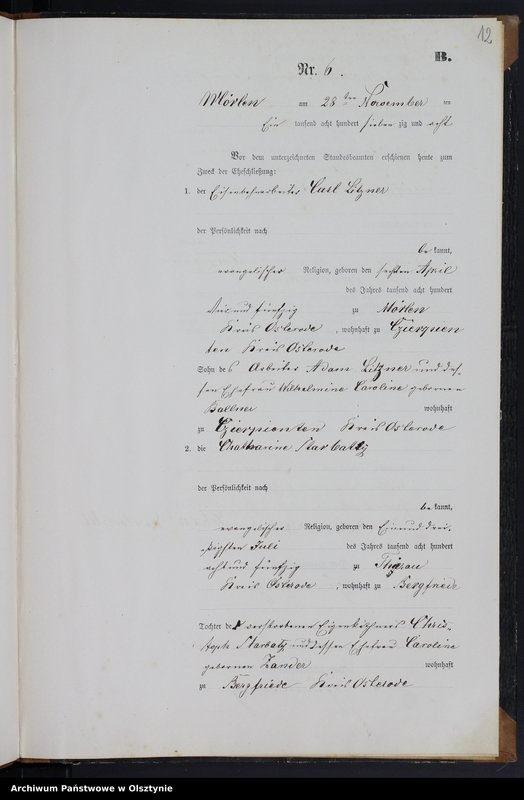 12
B.
Nr. 6.
Mörlen am 28ten November ten
Ein tausend acht hundert siebenzig und acht
Vor dem unterzeichneten Standesbeamten erschienen heute zum
Zweck der Eheschließung:
1. der Eisenbahnarbeiter Carl Litzner
der Persönlichkeit nach
be kannt,
evangelischer Religion, geboren den sechsten April
des Jahres tausend acht hundert
und fünfzig zu Mörlen
Kreis Osterode, wohnhaft zu Czierpien
ten Kreis Osterode
Sohn des Arbeiter Adam Litzner und des-
sen Ehefrau Wilhelmine Caroline geborenen
Ballner wohnhaft
zu Czierpienten Kreis Osterode
2. die Chatharine Starbatzy
der Persönlichkeit nach
be kannt,
evangelischer Religion, geboren den Einunddrei-
ßigsten Juli des Jahres tausend acht hundert
acht und fünfzig zu Thyrau
Kreis Osterode, wohnhaft zu Bergfriede
Tochter des verstorbenen Eigenkäthners Chris-
toph Starbatzy und dessen Ehefrau Caroline
geborenen Zander wohnhaft
zu Bergfriede Kreis Osterode
Archiwum Państwowe w Olsztynie